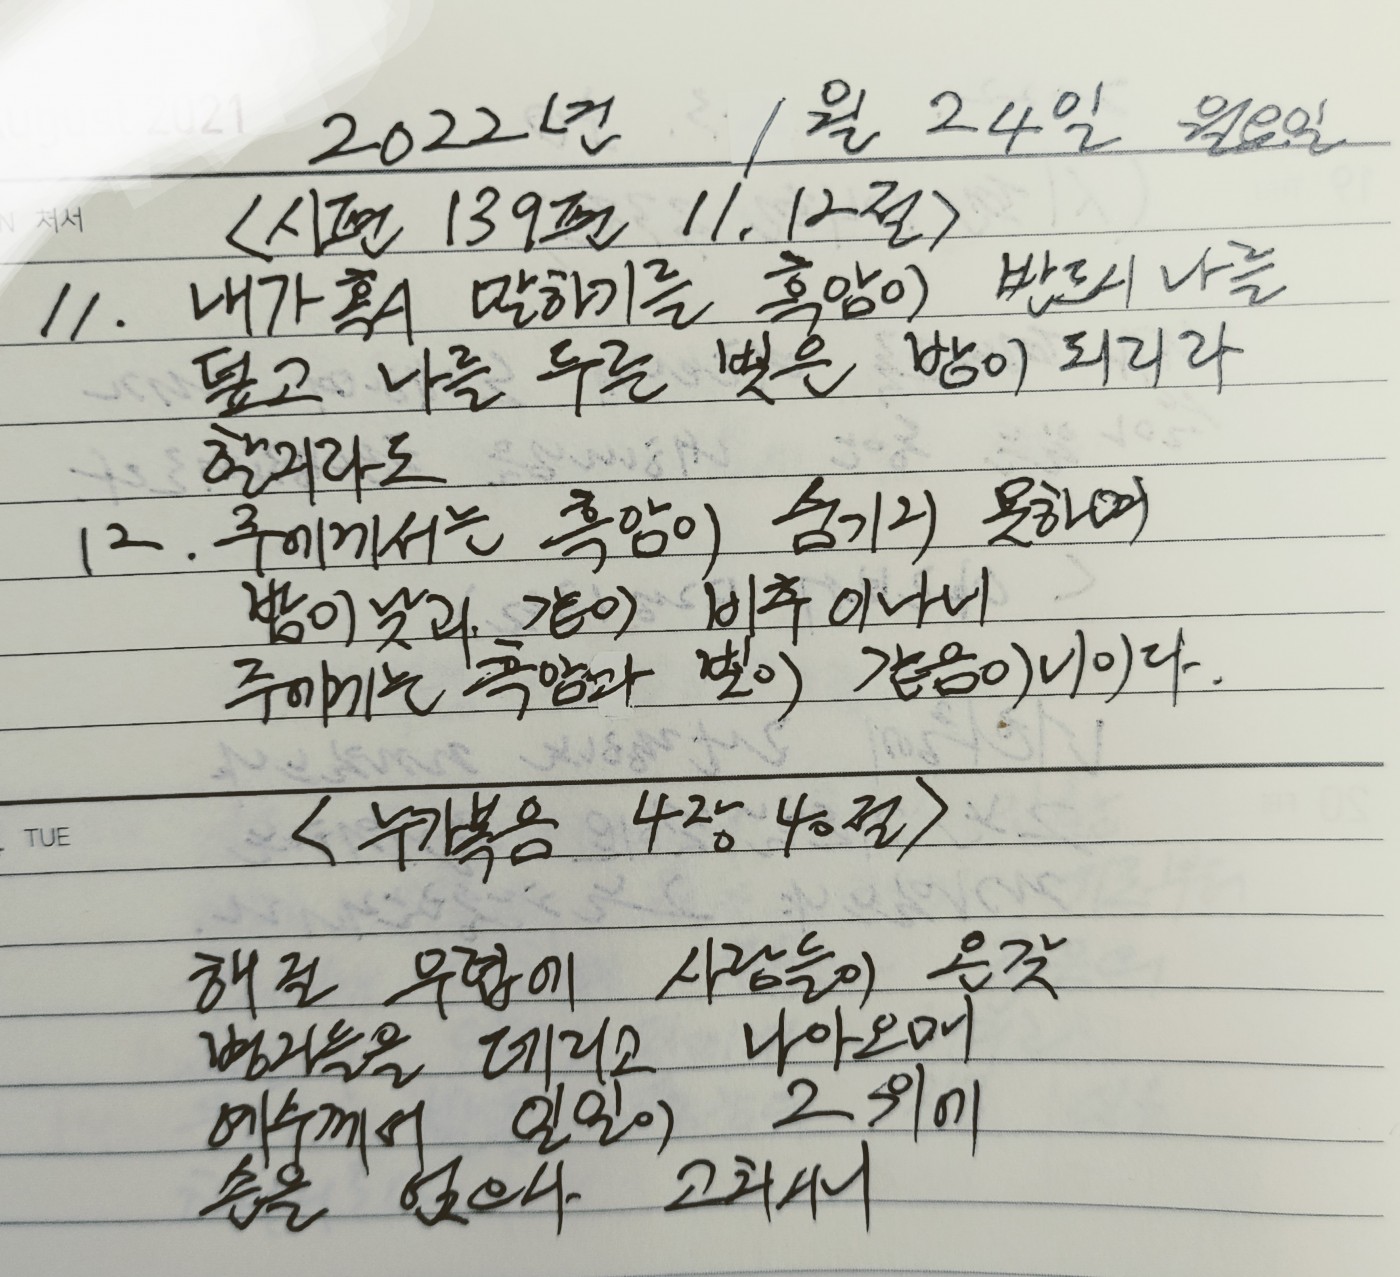 2021
2022년 1월 24일 월요일
처서
<시편 139편 11.12절>
11. 내가 혹시 말하기를 흑암이 반드시 나를
덮고 나를 두른 빛은 밤이 되리라
할지라도
12. 주에게서는 흑암이 숨기지 못하며
밤이 낮과 같이 비추이나니
주에게는 흑암과 빛이 같음이니이다.
TUE
<누가복음 4장 40절>
해 질 무렵에 사람들이 온갖
병자들을 데리고 나아오매
예수께서 일일이 그 위에
손을 얹으사 고치시니